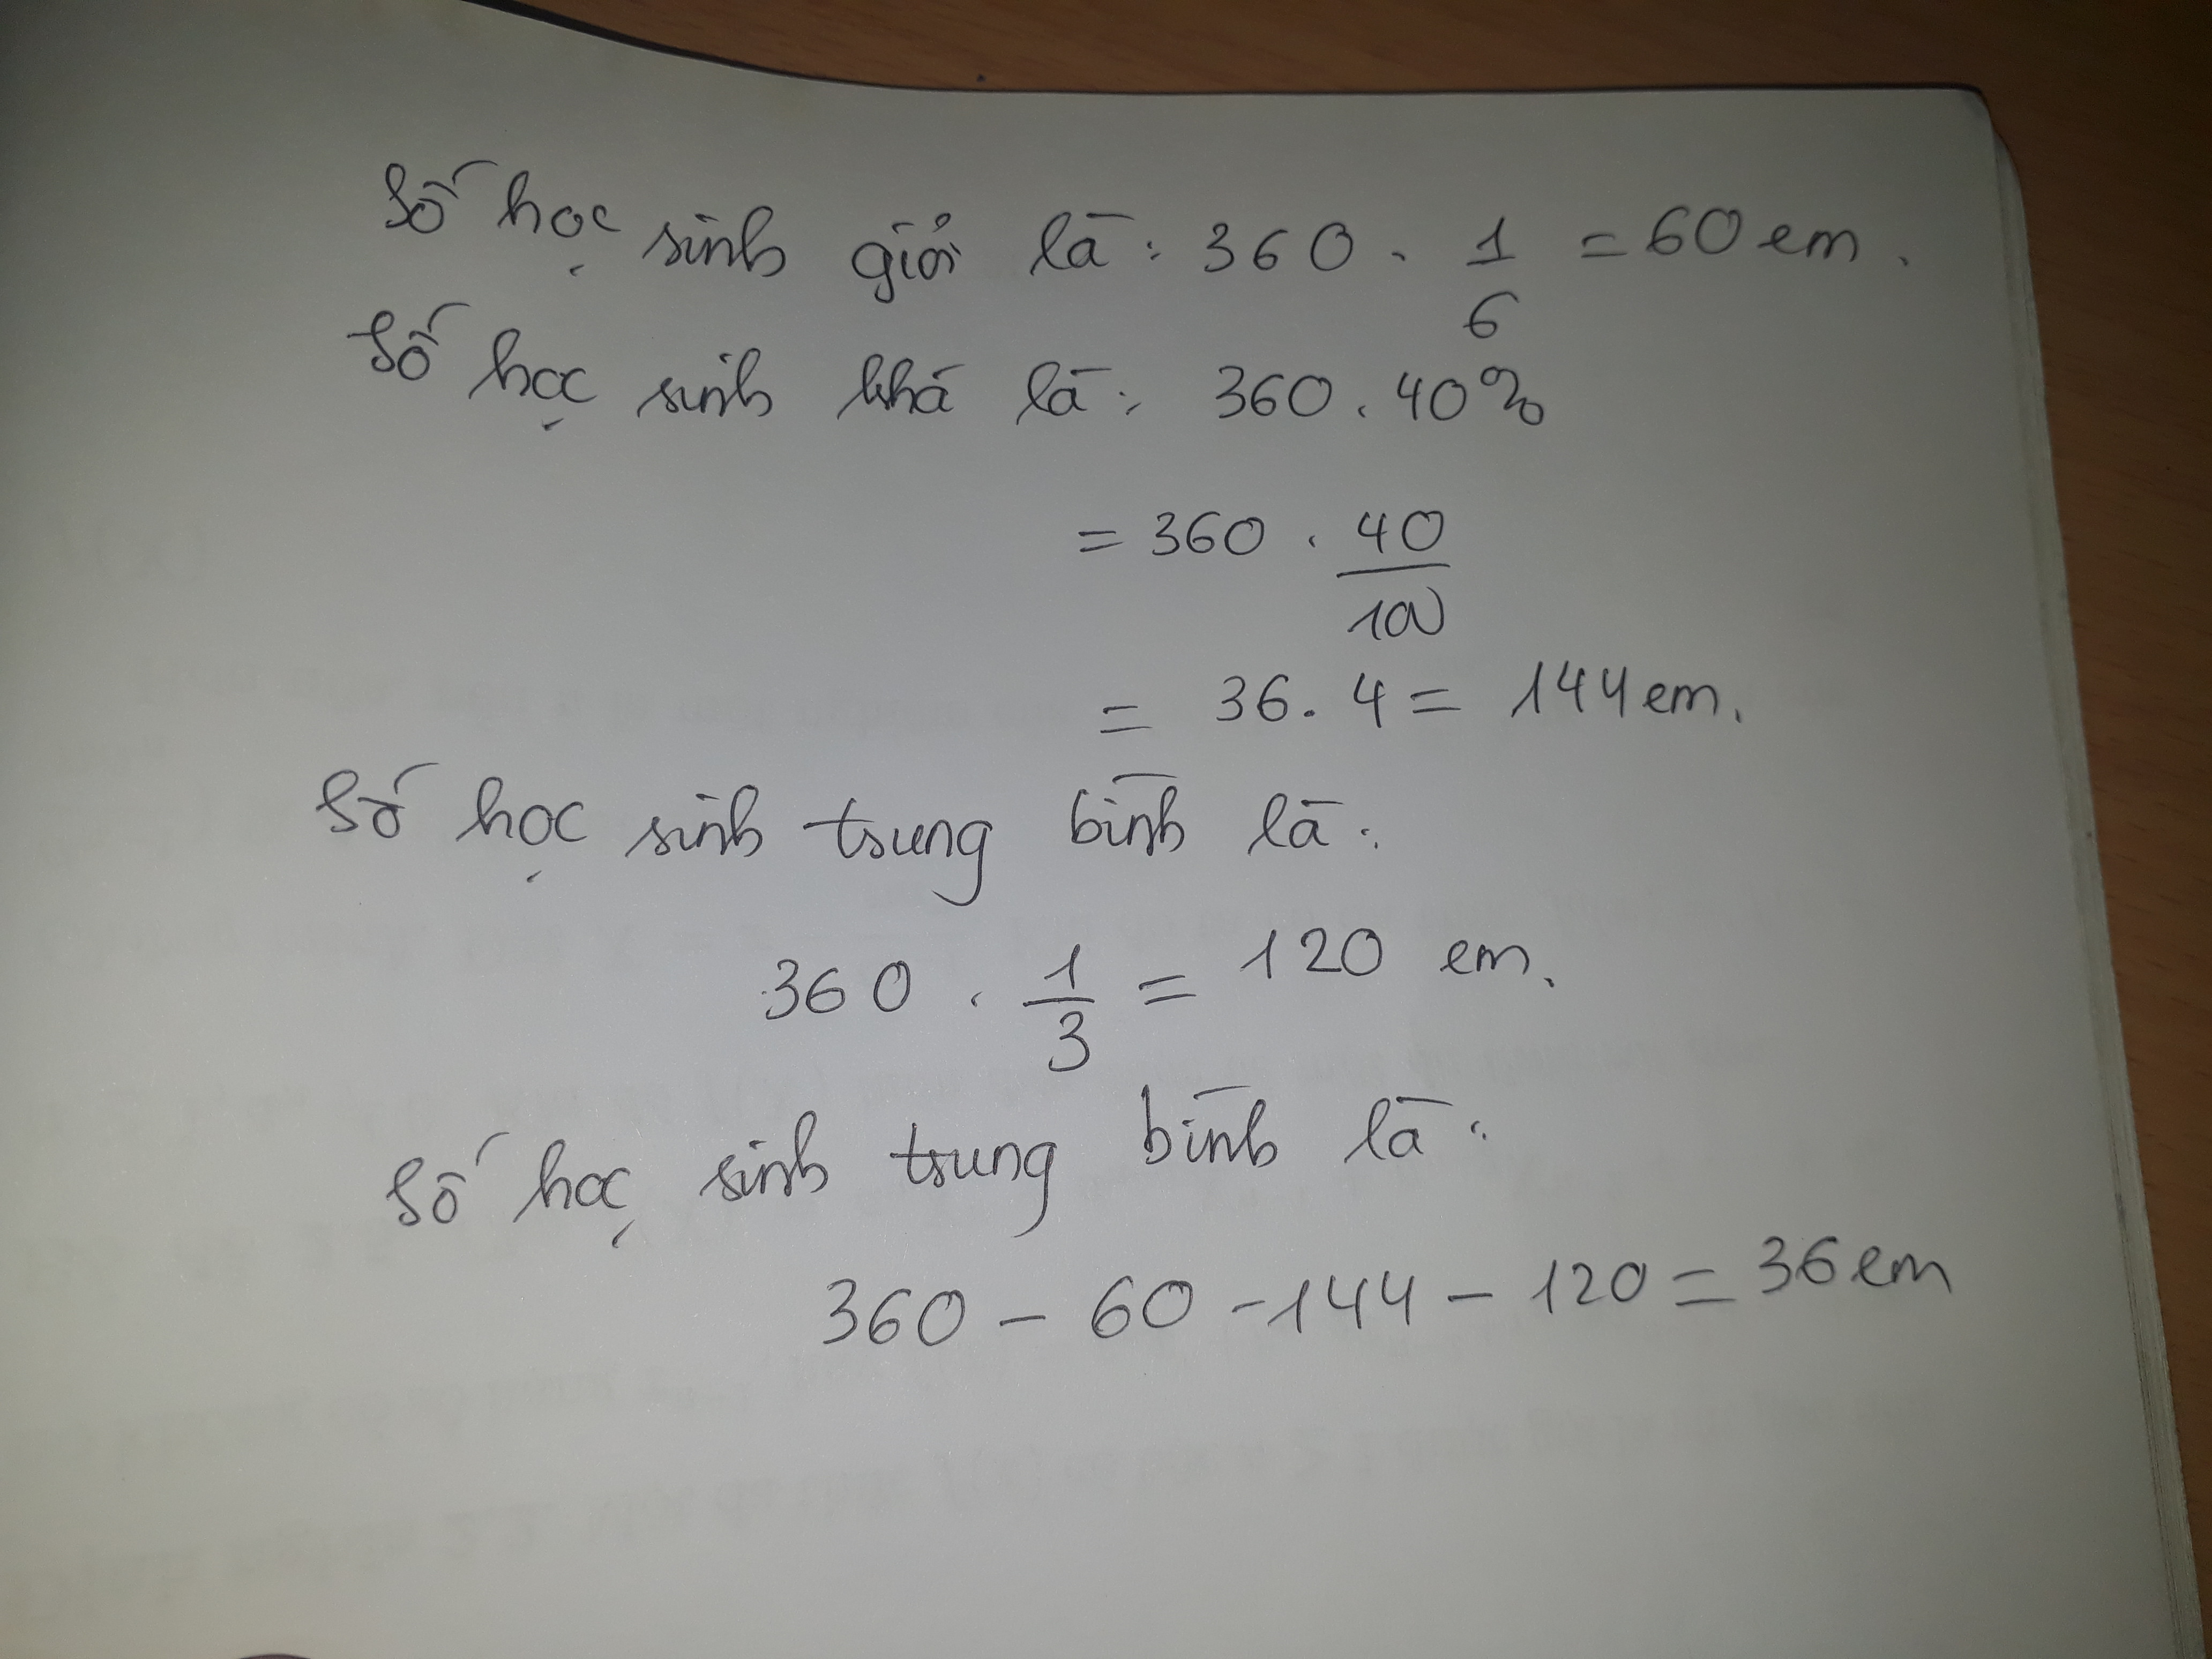 Số học sinh giỏi là: 360 . 1/6 = 60 em.
Số học sinh khá là: 360 . 40%
= 360 . 40/100
= 36 . 4 = 144 em.
Số học sinh trung bình là:
360 . 1/3 = 120 em.
Số học sinh trung bình là:
360 - 60 - 144 - 120 = 36 em